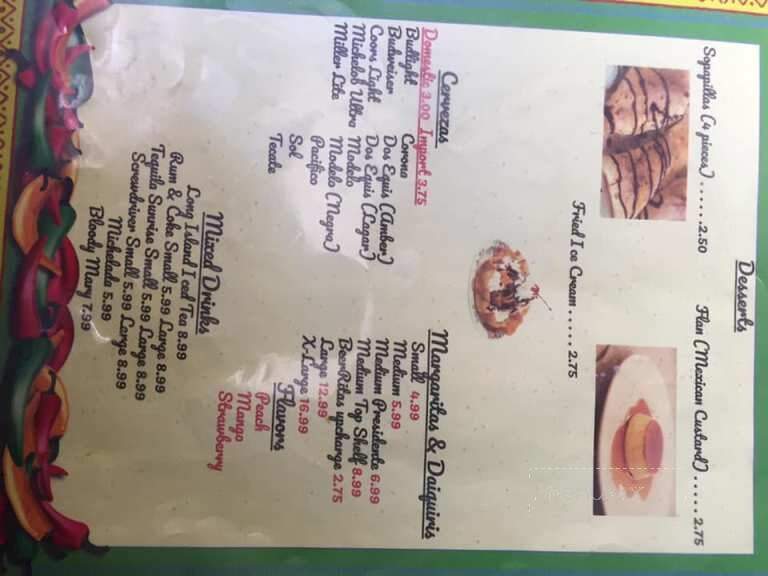 Desserts
Sopapillas (4 pieces) . . . . . . 2.50
Flan (Mexican Custard) . . . . . 2.75
Fried Ice Cream . . . . . 2.75
Cervezas
Domestic 3.00 Import 3.75
Budlight
Budweiser
Coors Light
Michelob Ultra
Miller Lite
Corona
Dos Equis (Amber)
Dos Equis (Lagar)
Modelo
Modelo (Negra)
Pacifico
Sol
Tecate
Margaritas & Daiquiris
Small 4.99
Medium 5.99
Medium Presidente 6.99
Medium Top Shelf 8.99
BeerRitas upcharge 2.75
Large 12.99
X-Large 16.99
Flavors
Peach
Mango
Strawberry
Mixed Drinks
Long Island Iced Tea 8.99
Rum & Coke Small 5.99 Large 8.99
Tequila Sunrise Small 5.99 Large 8.99
Screwdriver Small 5.99 Large 8.99
Michelada 5.99
Bloody Mary 7.99